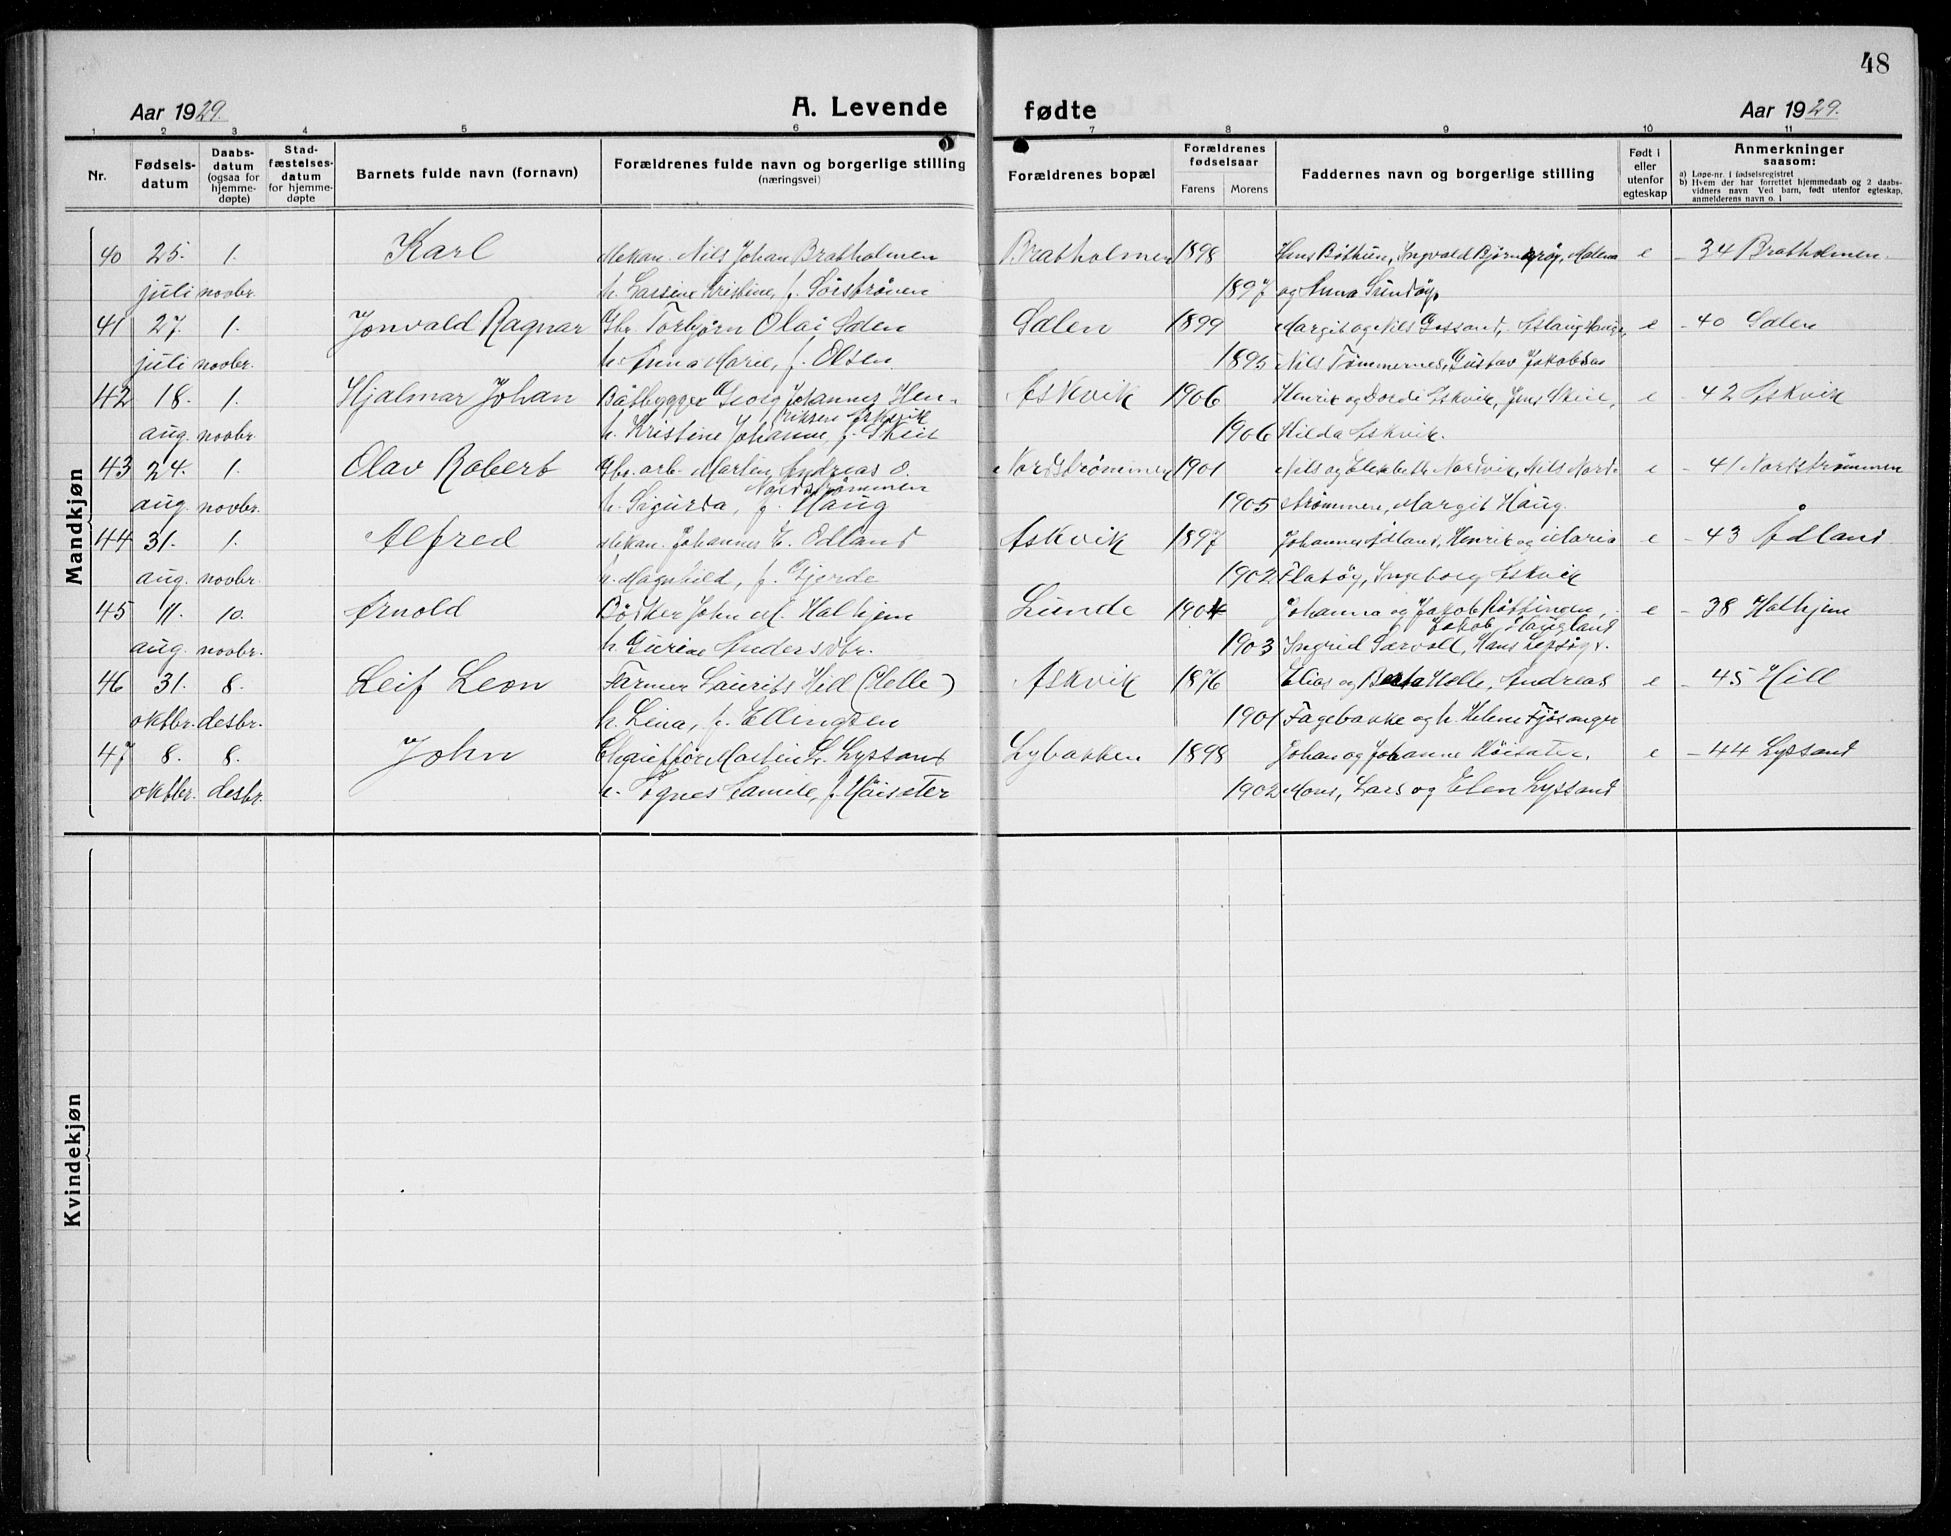 48
Aar 1929.
A. Levende
fødte
Aar 1929.
1 2 3 4 5 6 7 8 9 10 11
Nr.
Fødsels-
datum
Daabs-
datum
(ogsaa for
hjemme-
døpte)
Stad-
fæstelses-
datum
for hjemme-
døpte
Barnets fulde navn (fornavn)
Forældrenes fulde navn og borgerlige stilling
(næringsvei)
Forældrenes bopæl
Forældrenes
fødselsaar
Farens Morens
Faddernes navn og borgerlige stilling
Født i
eller
utenfor
egteskap
Anmerkninger
saasom:
a) Løpe-nr. i fødselsregistret
b) Hvem der har forrettet hjemmedaab og 2 daabs-
vidners navn Ved barn, født utenfor egteskap,
anmelderens navn o. l
Mandkjøn
40 25. 1. Karl Mekan. Nils Johan Bratholmen Bratholmen 1898 Hans Bøthun, Ingvald Bjørnerøy, Malena e - 34 Bratholmen
juli novbr. h. Lassine Kristine, f. 1897 og Anna Sundøy.
41 27. 1. Jonvald Ragnar Gbr. Torbjørn Olai Salen Salen 1899 Margit og Nils e - 40 Salen
juli novbr. h. Anna Marie, f. Olsen. 1895 Nils Tømmernes, Gustav Jakobsen
42 18. 1. Hjalmar Johan Båtbygger Georg Johannes Hen- Askvik 1906 Henrik og Dordi Askvik, Jens Skeie, e - 42 Askvik
riksen Askvik
aug. novbr. h. Kristine Johanne, f. Skeie 1906 Hilda Askvik.
43 24. 1. Olav Robert Gbr. arb. Martin Andreas O. Nordstrømmen 1901 Nils og Elisabeth Nordvik, Nils Nord- e - 41 Nordstrømmen
Nordstrømmen
aug. novbr. h. Sigurda, f. Haug 1905 strømmen, Margit Haug.
44 31. 1. Alfred Mekan. Johannes E. Ødland Askvik 1897 Johannes Ådland, Henrik og Maria e - 43 Ådland
aug. novbr. h. Magnhild, f. Gjerde 1902 Flatøy, Ingeborg Askvik
45 11. 10. Arnold Bødker John M. Halhjem Lunde 1904 Johanna og Jakob Røttingen, e - 38 Halhjem
Jakob Haugland
aug. novbr. h. Gurine Andersdtr. 1903 Ingrid Sørvoll, Hans Lepsøy.
46 31. 8. Leif Leon Farmer Laurits Hill (Helle) Askvik 1876 Elias og Berta Helle, Andreas e - 45 Hill
oktbr. desbr. h. Lina, f. Ellingsen 1901 Fagebakke og h. Helene Fjøsanger
47 8. 8. John Chauffør Martin L. Lyssand Lybakken 1898 Johan og Johanne e - 44 Lyssand
oktbr. desbr. h. Agnes Lamile, f. 1902 Mons, Lars og Elen Lyssand
Kvindekjøn